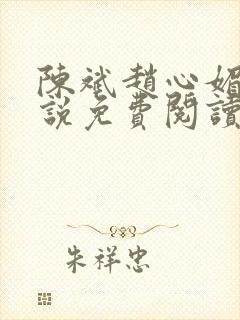 陳斌趙心媚
説免費閱讀
朱祥忠